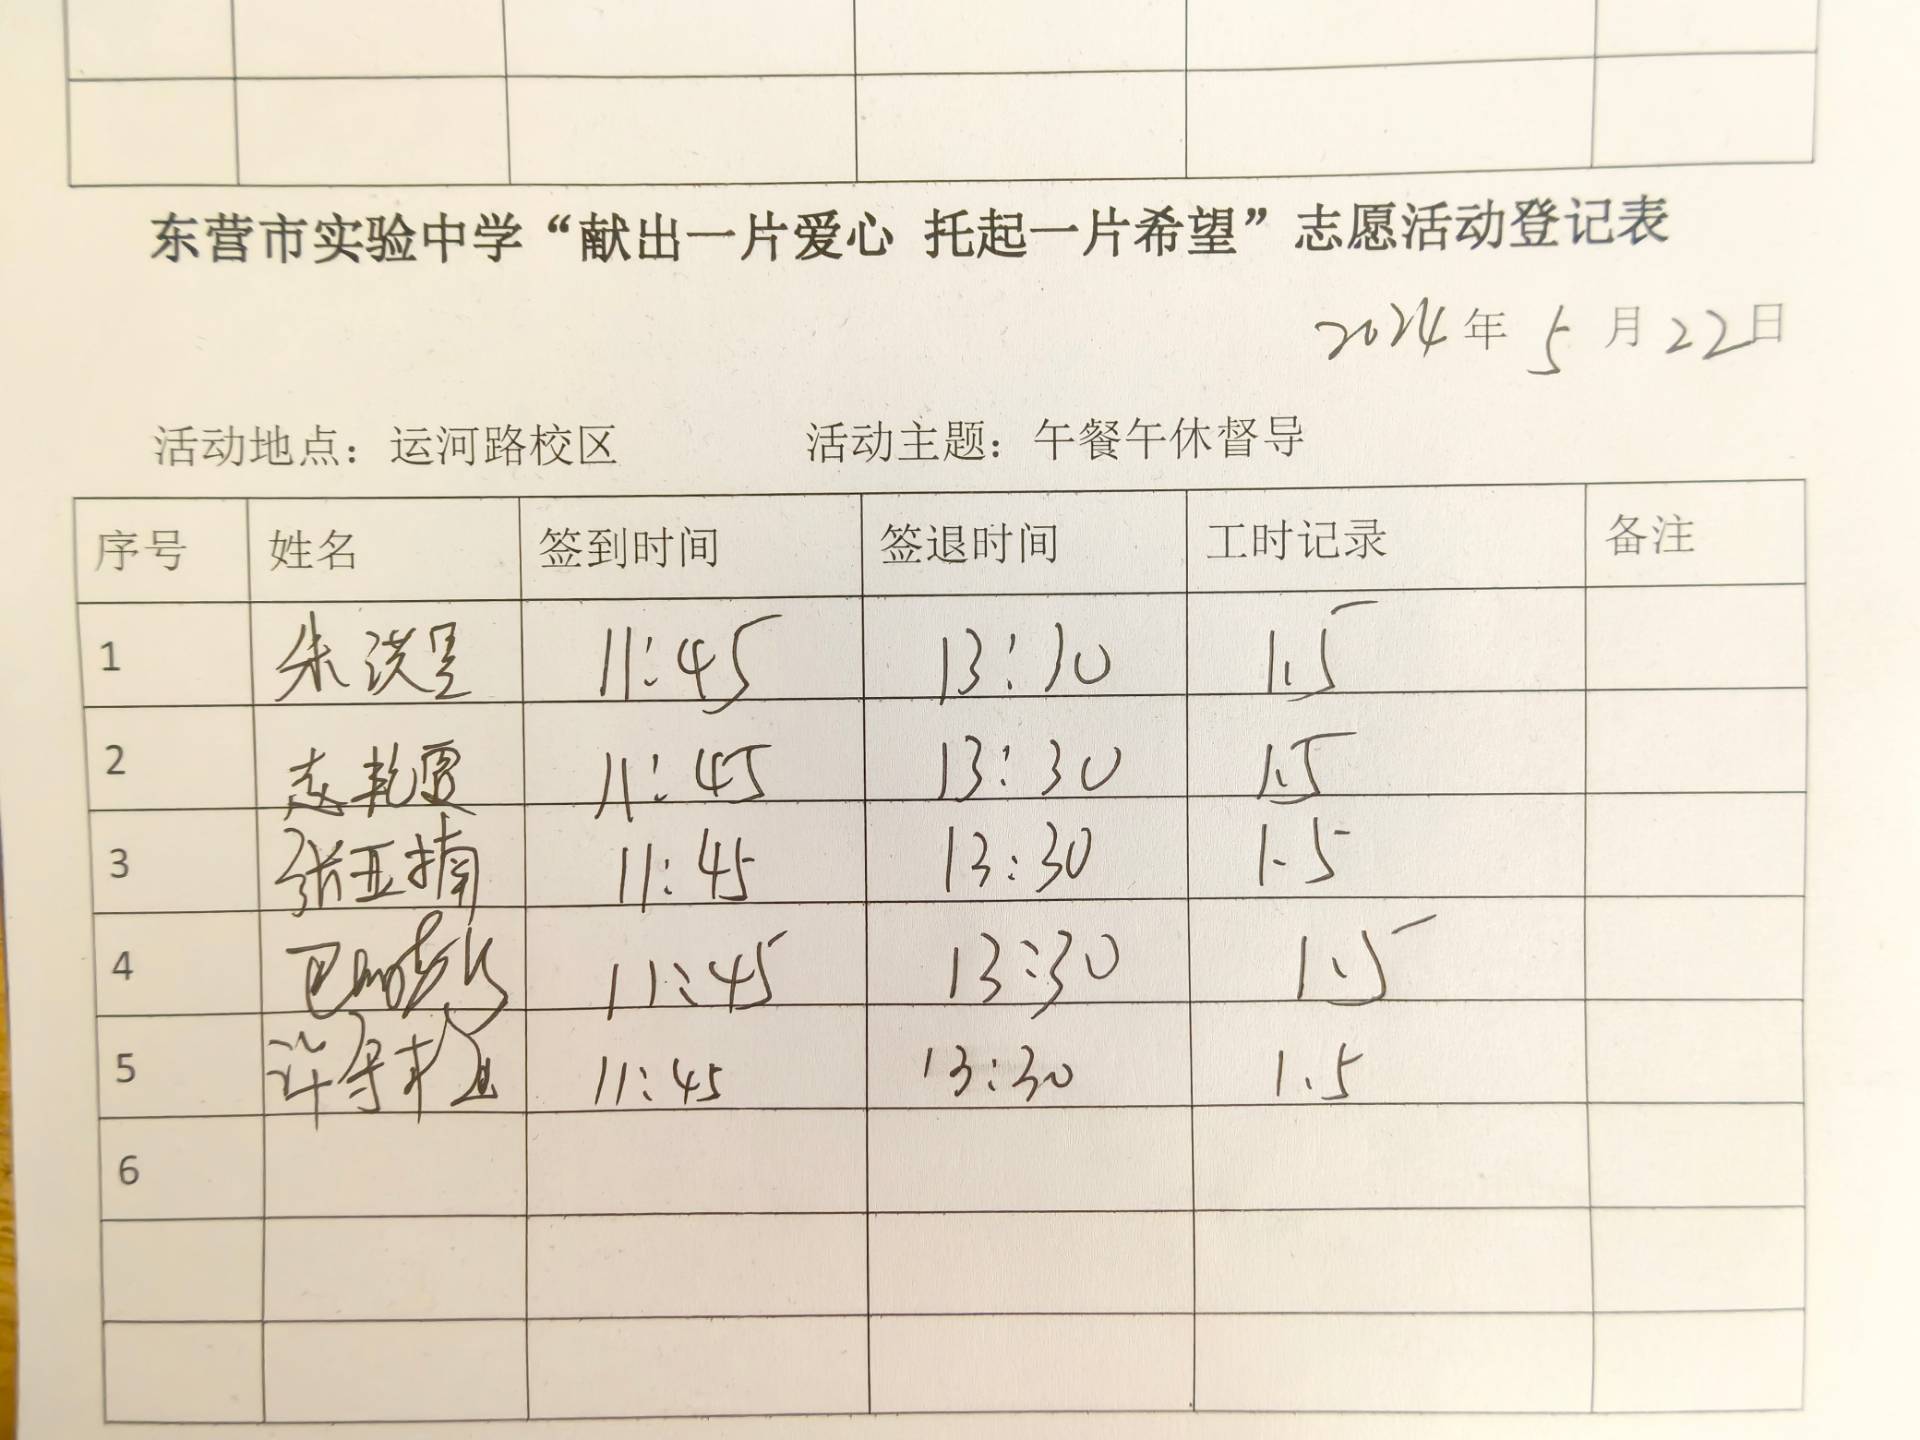 东营市实验中学“献出一片爱心 托起一片希望”志愿活动登记表
2024年 5 月 22日
活动地点：运河路校区 活动主题：午餐午休督导
序号 姓名 签到时间 签退时间 工时记录 备注
1 朱洪昱 11:45 13:30 1.5
2 11:45 13:30 1.5
3 张亚楠 11:45 13:30 1.5
4 11:45 13:30 1.5
5 11:45 13:30 1.5
6